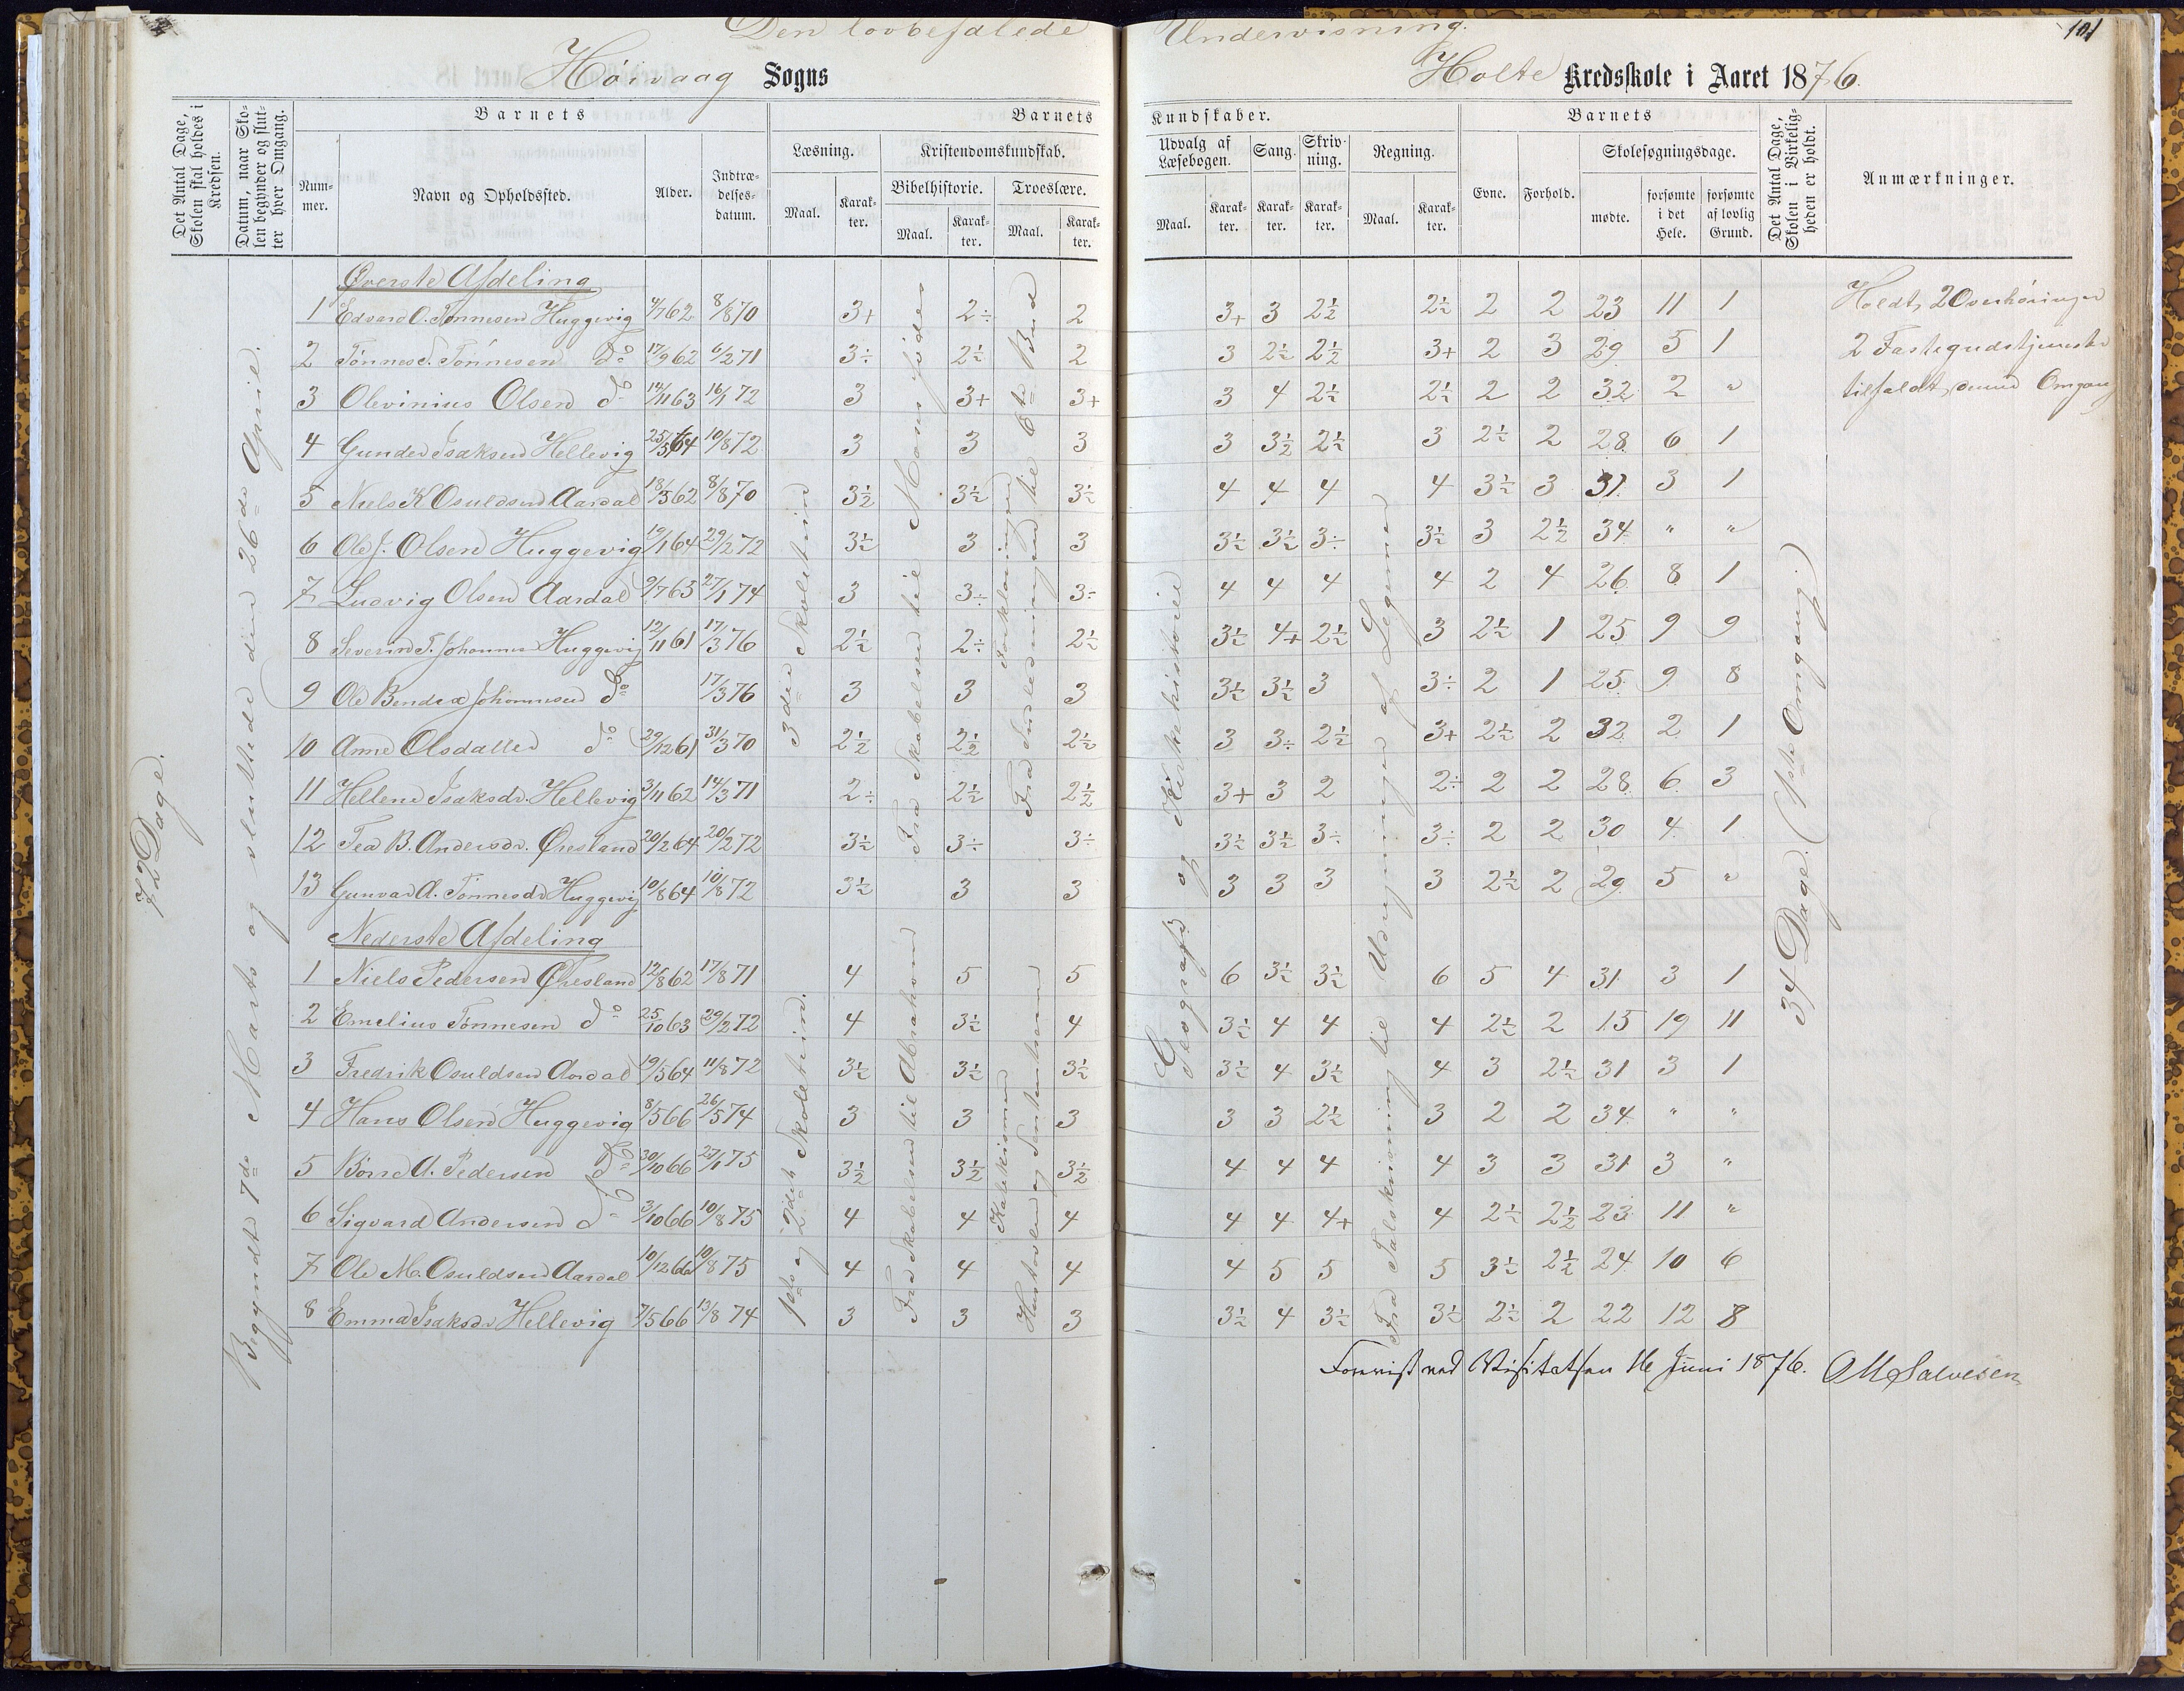 Den lovbefalede Undervisning.
101
Høivaag Sogns
Holte Kredsskole i Aaret 1876.
Det Antal Dage, Skolen skal holdes i Kredsen.
Datum, naar Skolen begynder og slutter hver Omgang.
Barnets
Nummer.
Navn og Opholdssted.
Alder.
Indtrædelsesdatum.
Barnets
Læsning.
Maal.
Karakter.
Kristendomskundskab.
Bibelhistorie.
Maal.
Karakter.
Troeslære.
Maal.
Karakter.
Kundskaber.
Udvalg af Læsebogen.
Maal.
Karakter.
Sang.
Karakter.
Skrivning.
Karakter.
Regning.
Maal.
Karakter.
Barnets
Evne.
Forhold.
Skolesøgningsdage.
mødte.
forsømte i det Hele.
forsømte af lovlig Grund.
Det Antal Dage, Skolen i Virkeligheden er holdt.
Anmærkninger.
72 Dage.
Begyndt 7de Marts og sluttede den 26de April.
Øverste Afdeling
1 Edvard O. Tønnesen Huggevig 4/7 62 8/8 70 3+ 2÷ 2 3+ 3 2½ 2½ 2 2 23 11 1
2 Tønnes T. Tønnesen do 17/9 62 6/2 71 3÷ 2½ 2 3 2½ 2½ 3+ 2 3 29 5 1
3 Olevinius Olsen do 14/11 63 16/1 72 3 3+ 3+ 3 4 2½ 2½ 2 2 32 2 "
4 Gunder Isaksen Hellevig 25/5 64 10/8 72 3 3 3 3 3½ 2½ 3 2½ 2 28 6 1
5 Niels K Osuldsen Aardal 18/5 62 8/8 70 3½ 3½ 3½ 4 4 4 4 3½ 3 31 3 1
6 Ole J. Olsen Huggevig 19/1 64 29/2 72 3½ 3 3 3½ 3½ 3÷ 3½ 3 2½ 34 " "
7 Ludvig Olsen Aardal 9/7 63 27/1 74 3 3÷ 3÷ 4 4 4 4 2 4 26 8 1
8 Severin T. Johannes Huggevig 12/11 61 17/3 76 2½ 2÷ 2½ 3½ 4+ 2½ 3 2½ 1 25 9 9
9 Ole Bendix Johannesen do 17/3 76 3 3 3 3½ 3½ 3 3÷ 2 1 25 9 8
10 Anne Olsdatter do 29/12 61 31/3 70 2½ 2½ 2½ 3 3÷ 2½ 3+ 2½ 2 32 2 1
11 Hellene Isaksdr. Hellevig 3/11 62 14/3 71 2÷ 2½ 2½ 3+ 3 2 2÷ 2 2 28 6 3
12 Tea B. Andersdr. Øresland 20/2 64 20/2 72 3½ 3÷ 3÷ 3½ 3½ 3÷ 3÷ 2 2 30 4 1
13 Gunvar A. Tønnesdr Huggevig 10/8 64 10/8 72 3½ 3 3 3 3 3 3 2½ 2 29 5 "
Nederste Afdeling
1 Niels Pedersen Øresland 12/8 62 17/8 71 4 5 5 6 3½ 3½ 6 5 4 31 3 1
2 Emelius Tønnesen do 25/10 63 29/2 72 4 3½ 4 3½ 4 4 4 2½ 2 15 19 11
3 Fredrik Osuldsen Aardal 19/5 64 11/8 72 3½ 3½ 3½ 3½ 4 3½ 4 3 2½ 31 3 1
4 Hans Olsen Huggevig 8/5 66 26/5 74 3 3 3 3 3 2½ 3 2 2 34 " "
5 Børre A. Pedersen do 30/10 66 27/1 75 3½ 3½ 3½ 4 4 4 4 3 3 31 3 "
6 Sigvard Andersen do 3/10 66 10/8 75 4 4 4 4 4 4+ 4 2½ 2½ 23 11 "
7 Ole M. Osuldsen Aardal 10/12 66 10/8 75 4 4 4 4 5 5 5 3½ 2½ 24 10 6
8 Emma Isaksdr Hellevig 7/5 66 13/8 74 3 3 3 3½ 4 3½ 3½ 2½ 2 22 12 8
3die Skoletrin
1ste og 2det Skoletrin.
Fra Skabelsen til Mose fødes
Fra Skabelsen til Abraham
Forklaringen
Fra Indledningen til 6te Bud
Katekismen
Hustavlen og
Geografi og Kirkehistorie
Fra Talskrivning til Udregninger af Legemer
34 Dage. (1ste Omgang.)
Holdt 2 Overhøringer
2 Fastegudstjenester
tilfaldt denne Omgang
Forevist ved Visitatsen 16 Juni 1876. OMSalvesen